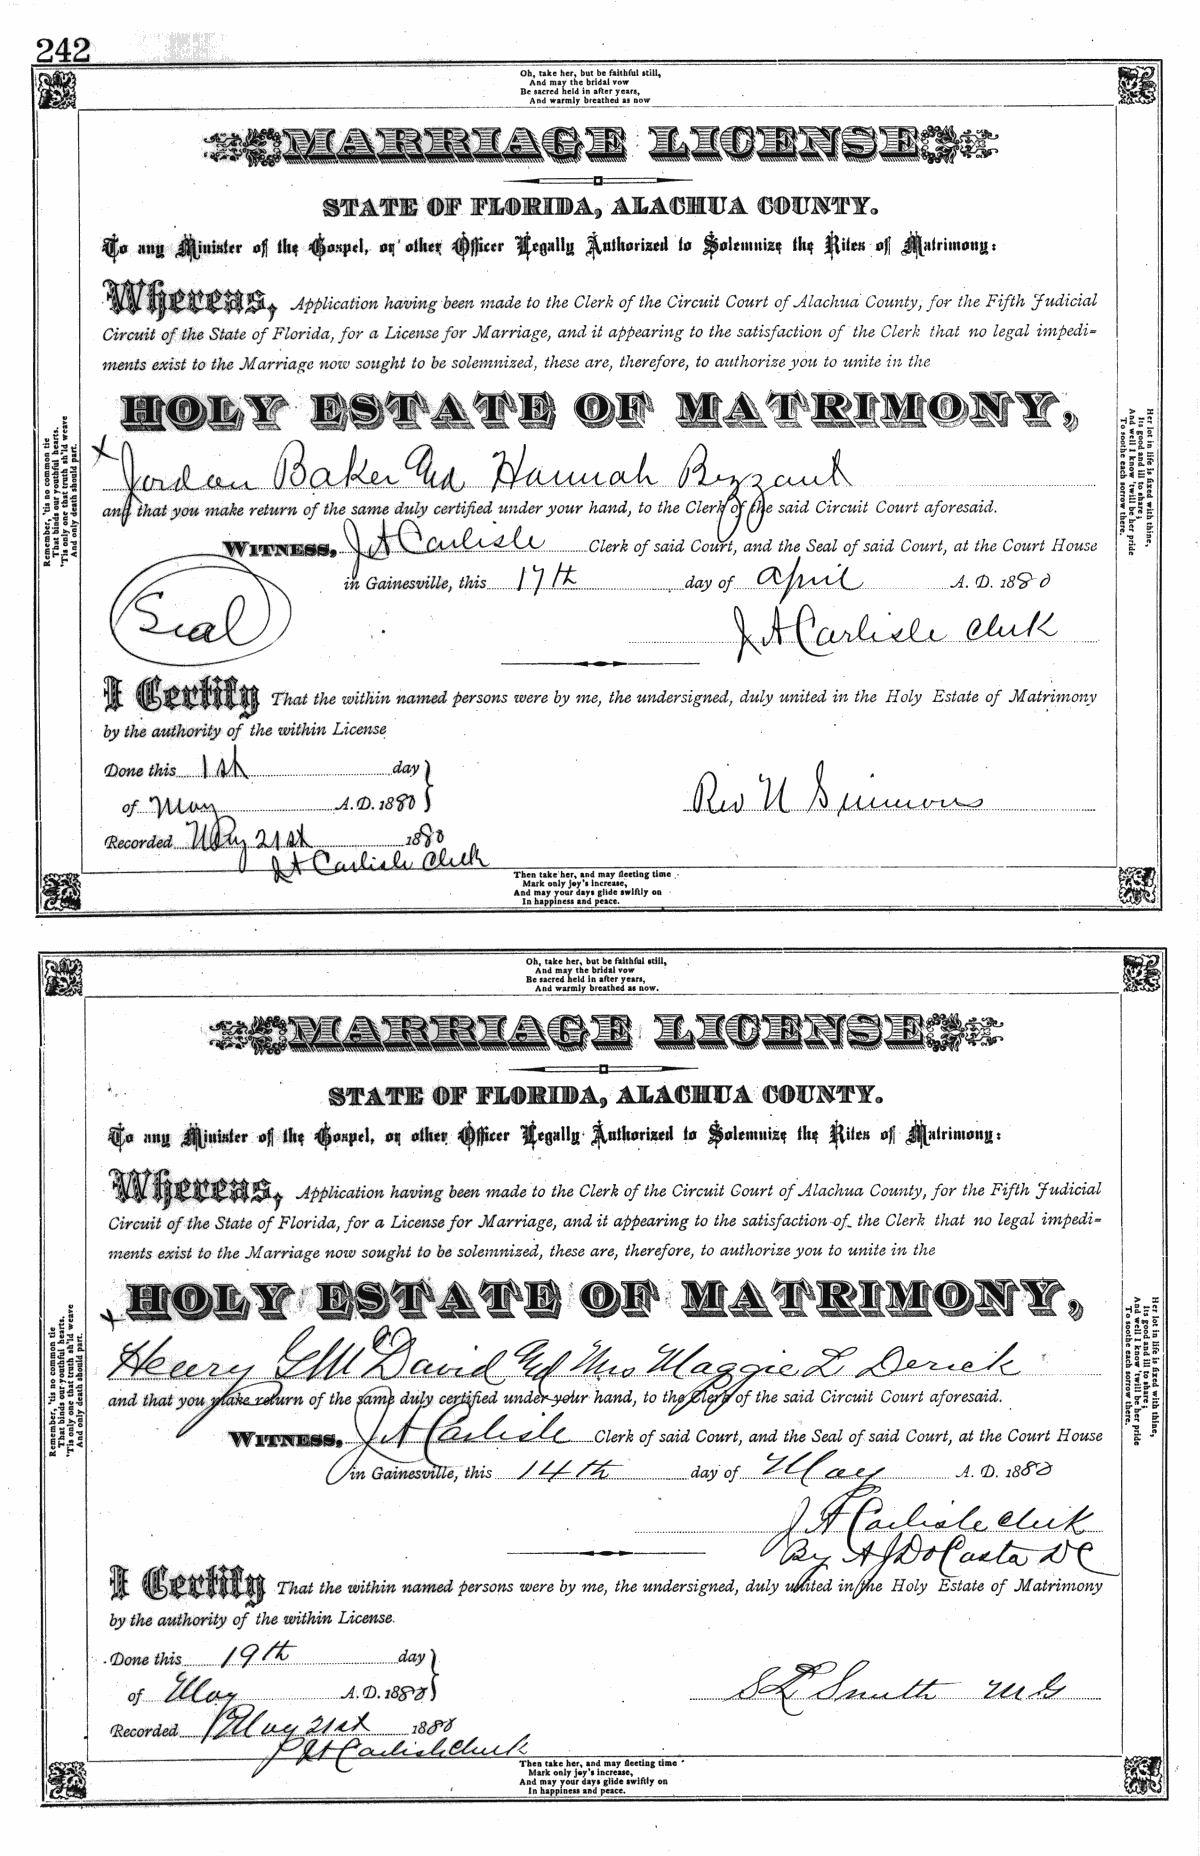 242
Oh, take her, but be faithful still,
And may the bridal vow
Be sacred held in after years,
And warmly breathed as now
MARRIAGE LICENSE
STATE OF FLORIDA, ALACHUA COUNTY.
To any Minister of the Gospel, or other Officer Legally Authorized to Solemnize the Rites of Matrimony:
Whereas, Application having been made to the Clerk of the Circuit Court of Alachua County, for the Fifth Judicial
Circuit of the State of Florida, for a License for Marriage, and it appearing to the satisfaction of the Clerk that no legal impedi=
ments exist to the Marriage now sought to be solemnized, these are, therefore, to authorize you to unite in the
HOLY ESTATE OF MATRIMONY,
x Jordan Baker And Hannah Byzzant
and that you make return of the same duly certified under your hand, to the Clerk of the said Circuit Court aforesaid.
WITNESS, J A Carlisle Clerk of said Court, and the Seal of said Court, at the Court House
in Gainesville, this 17th day of April A. D. 1880
Seal
J A Carlisle Clerk
I Certify That the within named persons were by me, the undersigned, duly united in the Holy Estate of Matrimony
by the authority of the within License
Done this 1st day
of May A. D. 1880
Rev N Simmons
Recorded May 21st 1880
J A Carlisle Clerk
Then take her, and may fleeting time
Mark only joy's increase,
And may your days glide swiftly on
In happiness and peace.
Remember, 'tis no common tie
That binds our youthful hearts.
'Tis only one that truth sh'ld weave
And only death should part.
Her lot in life is fixed with thine,
Its good and ill to share;
And well I know 'twill be her pride
To soothe each sorrow there.
Oh, take her, but be faithful still,
And may the bridal vow
Be sacred held in after years,
And warmly breathed as now.
MARRIAGE LICENSE
STATE OF FLORIDA, ALACHUA COUNTY.
To any Minister of the Gospel, or other Officer Legally Authorized to Solemnize the Rites of Matrimony:
Whereas, Application having been made to the Clerk of the Circuit Court of Alachua County, for the Fifth Judicial
Circuit of the State of Florida, for a License for Marriage, and it appearing to the satisfaction of the Clerk that no legal impedi=
ments exist to the Marriage now sought to be solemnized, these are, therefore, to authorize you to unite in the
HOLY ESTATE OF MATRIMONY,
x Henry G McDavid And Mrs Maggie L Derick
and that you make return of the same duly certified under your hand, to the Clerk of the said Circuit Court aforesaid.
WITNESS, J A Carlisle Clerk of said Court, and the Seal of said Court, at the Court House
in Gainesville, this 14th day of May A. D. 1880
J A Carlisle Clerk
By A J DaCosta DC
I Certify That the within named persons were by me, the undersigned, duly united in the Holy Estate of Matrimony
by the authority of the within License.
Done this 19th day
of May A. D. 1880
S L Smith M G
Recorded May 21st 1880
J A Carlisle Clerk
Then take her, and may fleeting time
Mark only joy's increase,
And may your days glide swiftly on
In happiness and peace.
Remember, 'tis no common tie
That binds our youthful hearts.
'Tis only one that truth sh'ld weave
And only death should part.
Her lot in life is fixed with thine,
Its good and ill to share;
And well I know 'twill be her pride
To soothe each sorrow there.